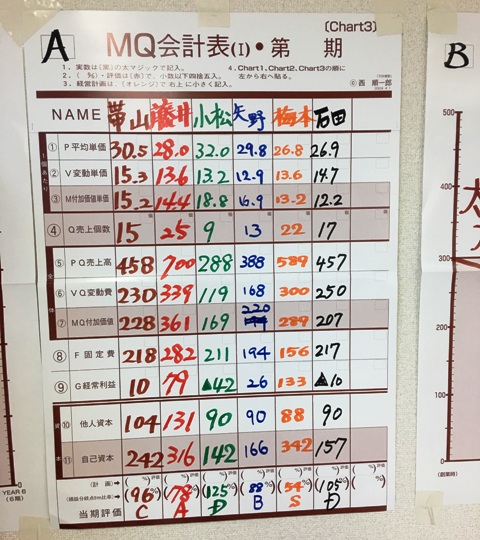 (Chart3)
A
MQ会計表(I)・第 期
1．実数は(黒)の太マジックで記入。
2．( %)・評価は(赤)で、小数以下四捨五入。
3．経営計画は、(オレンジ)で右上に小さく記入。
4．Chart1、Chart2、Chart3の順に
左から右へ貼る。
©西 順一郎
NAME 帯山 藤井 小松 矢野 梅本 石田
1個あたり
① P平均単価 30.5 28.0 32.0 29.8 26.8 26.9
② V変動単価 15.3 13.6 13.2 12.9 13.6 14.7
③ M付加価値単価 15.2 14.4 18.8 16.9 13.2 12.2
④ Q売上個数 15 25 9 13 22 17
全体
⑤ PQ売上高 458 700 288 388 589 457
⑥ VQ変動費 230 339 119 168 300 250
⑦ MQ付加価値 228 361 169 220 289 207
⑧ F固定費 218 282 211 194 156 217
⑨ G経常利益 10 79 ▲42 26 133 ▲10
資本
⑩ 他人資本 104 131 90 90 88 90
⑪ 自己資本 242 316 142 166 342 157
(計画)→ ( %) ( %) ( %) ( %) ( %) ( %)
(損益分岐点f/m比率)→ (96%) (78%) (125%) (88%) (54%) (105%)
当期評価 C A Đ B S Đ
B
500
400
300
200
100
0
(創業時)
YEAR 6
(6期)